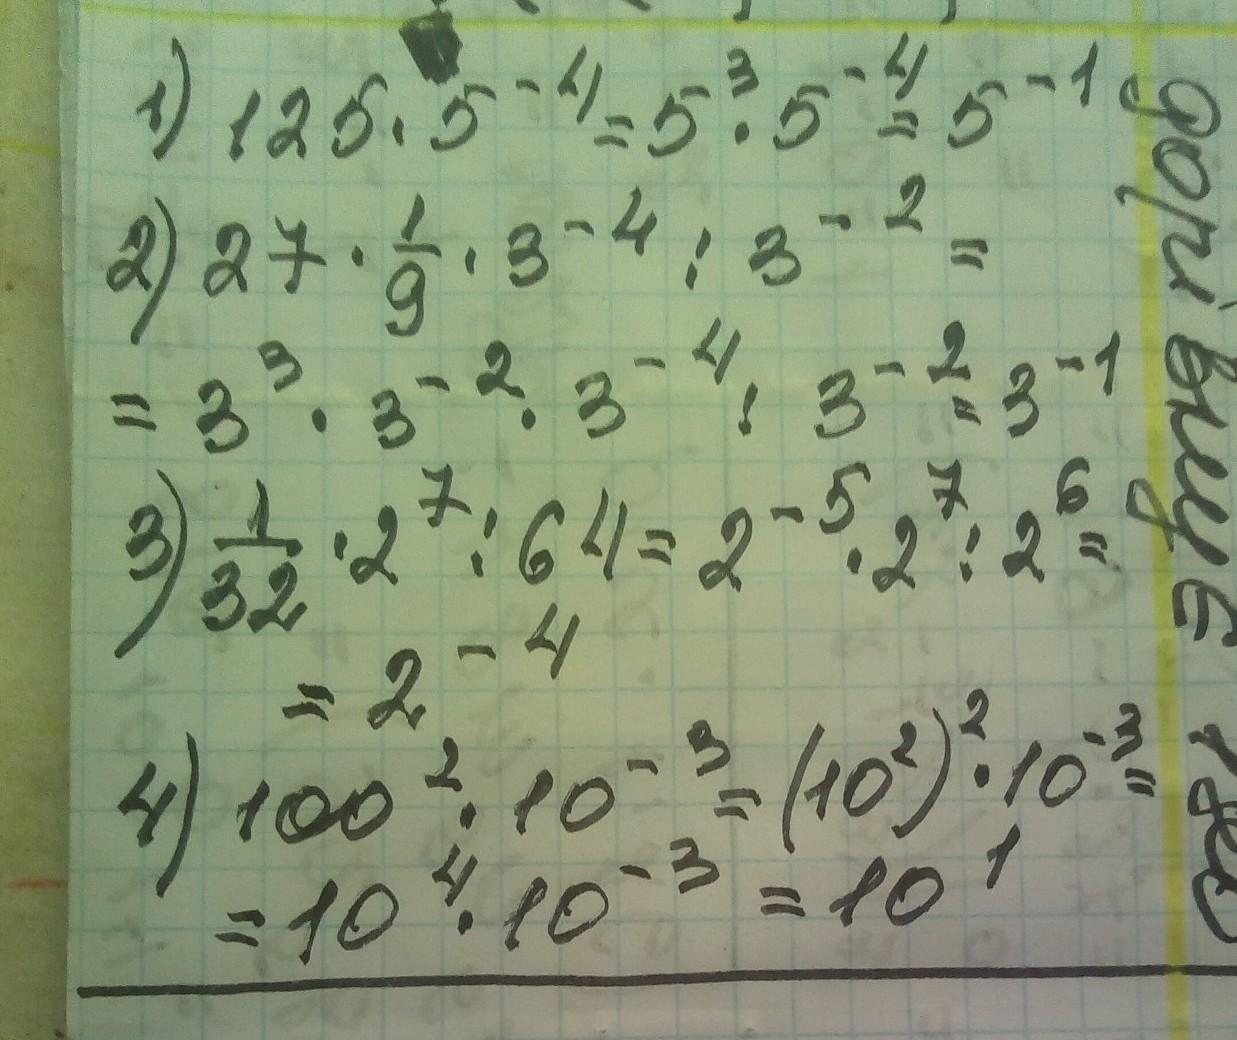 1) 125 · 5⁻⁴ = 5³ · 5⁻⁴ = 5⁻¹
2) 27 · 1/9 · 3⁻⁴ : 3⁻² =
= 3³ · 3⁻² · 3⁻⁴ : 3⁻² = 3⁻¹
3) 1/32 · 2⁷ : 64 = 2⁻⁵ · 2⁷ : 2⁶ =
= 2⁻⁴
4) 100² · 10⁻³ = (10²)² · 10⁻³ =
= 10⁴ · 10⁻³ = 10¹
дорівнує